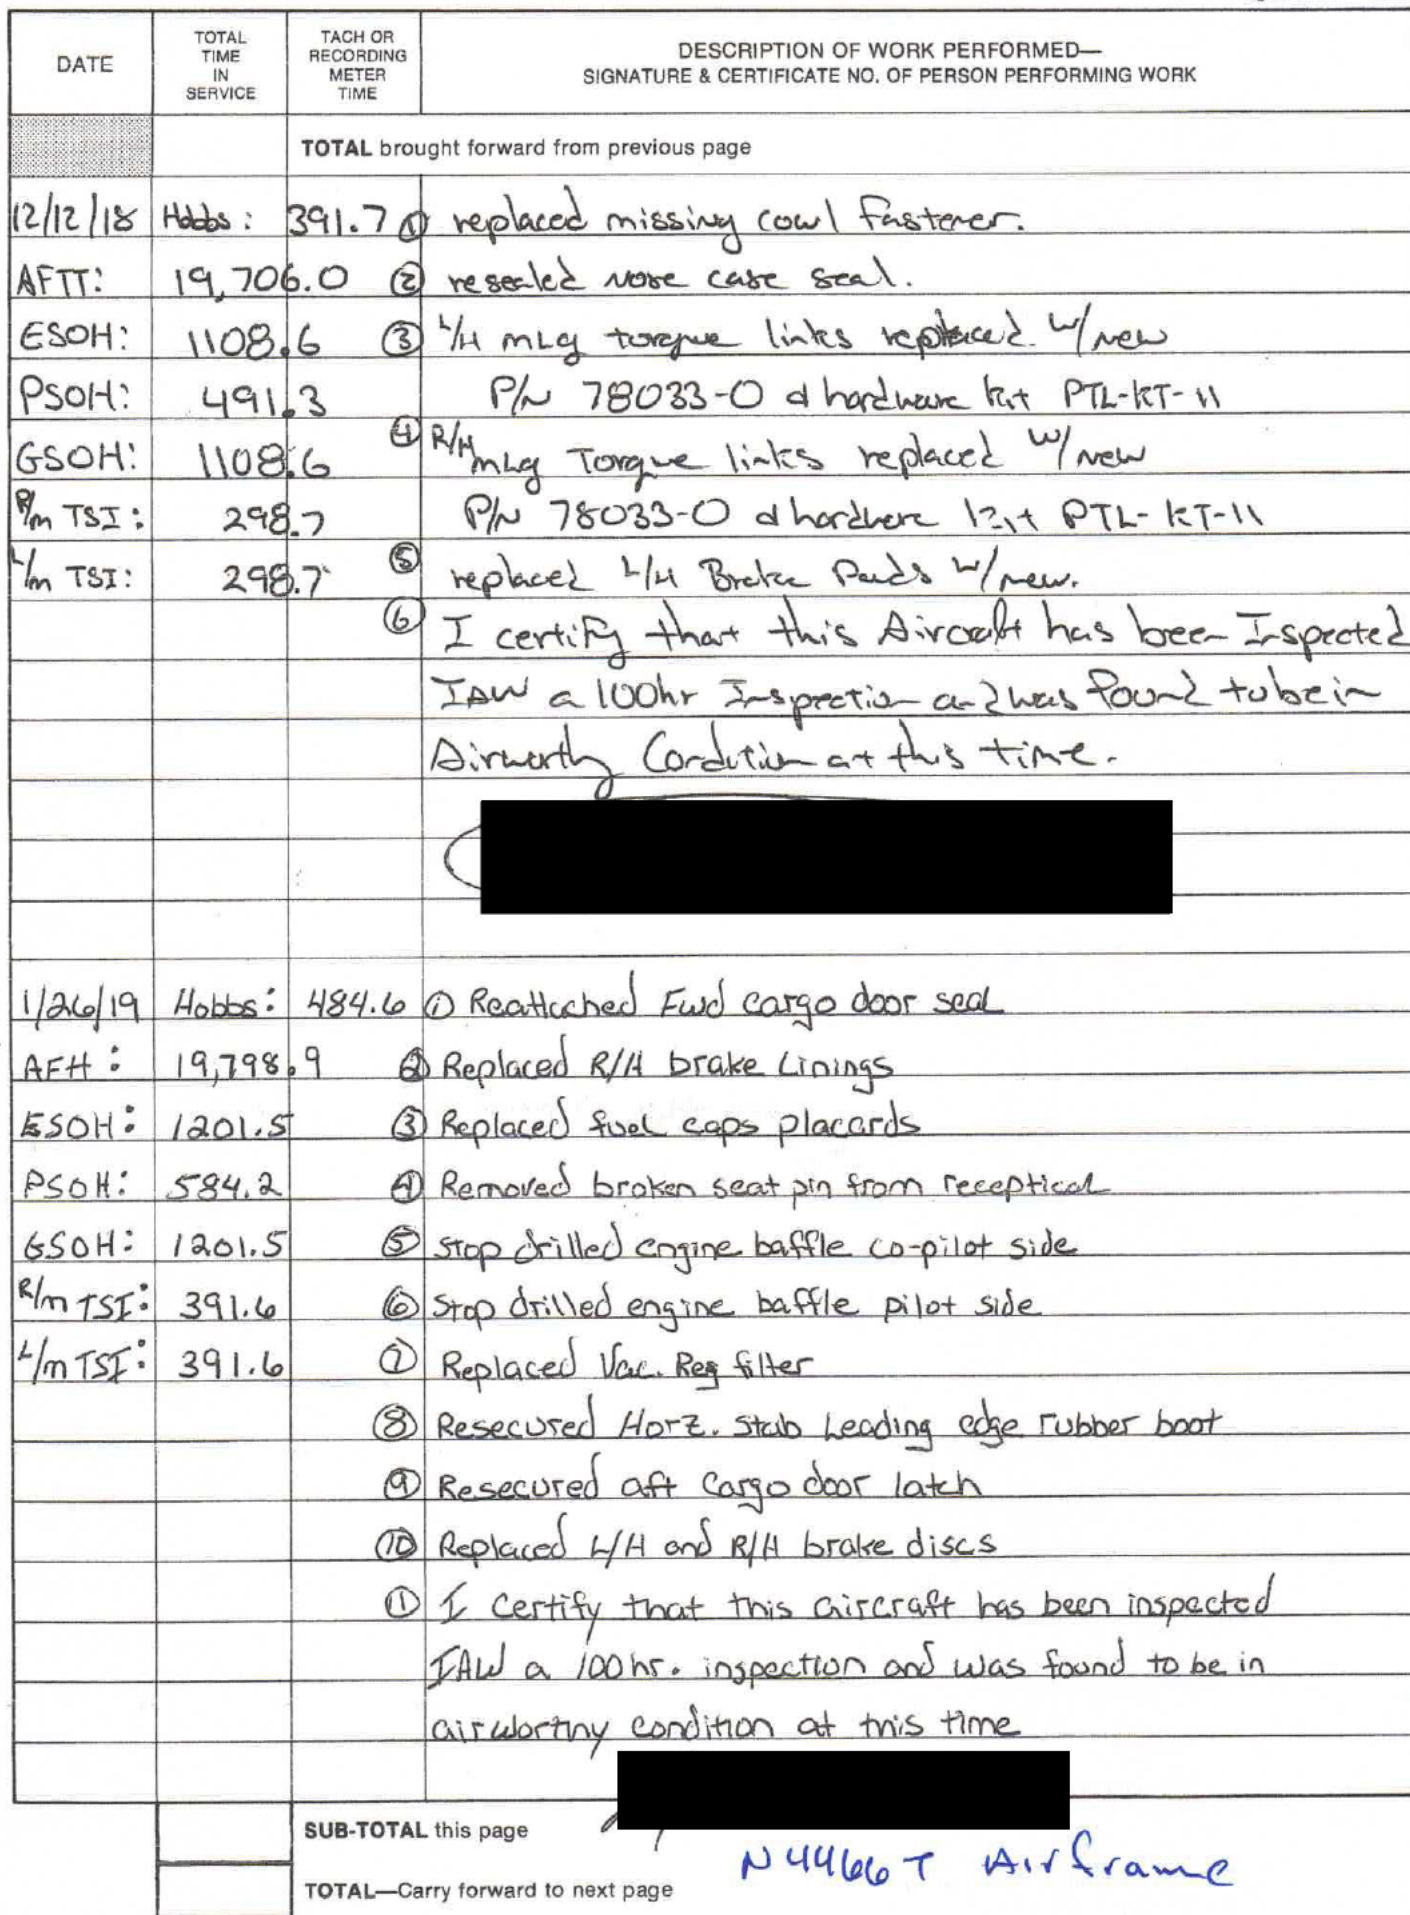 DATE
TOTAL TIME IN SERVICE
TACH OR RECORDING METER TIME
DESCRIPTION OF WORK PERFORMED—
SIGNATURE & CERTIFICATE NO. OF PERSON PERFORMING WORK
TOTAL brought forward from previous page
12/12/18 Hobbs: 391.7 ① replaced missing cowl fastener.
AFTT: 19,706.0 ② resealed nose case seal.
ESOH: 1108.6 ③ L/H mLg torque links replaced w/new
PSOH: 491.3 P/N 78033-0 & hardware kit PTL-KT-11
GSOH: 1108.6 ④ R/H mLg Torque links replaced w/new
R/m TSI: 298.7 P/N 78033-0 & hardware kit PTL-KT-11
L/m TSI: 298.7 ⑤ replaced L/H Brake Pads w/new.
⑥ I certify that this Aircraft has been Inspected
IAW a 100hr Inspection and was found to be in
Airworthy Condition at this time.
1/26/19 Hobbs: 484.6 ① Reattached Fwd cargo door seal
AFH: 19,798.9 ② Replaced R/H brake Linings
ESOH: 1201.5 ③ Replaced fuel caps placards
PSOH: 584.2 ④ Removed broken seat pin from receptical
GSOH: 1201.5 ⑤ Stop drilled engine baffle co-pilot side
R/m TSI: 391.6 ⑥ Stop drilled engine baffle pilot side
L/m TSI: 391.6 ⑦ Replaced Vac. Reg filter
⑧ Resecured Horz. Stab Leading edge rubber boot
⑨ Resecured aft cargo door latch
⑩ Replaced L/H and R/H brake discs
① I certify that this aircraft has been inspected
IAW a 100 hr. inspection and was found to be in
airworthy condition at this time
SUB-TOTAL this page
N4466T Airframe
TOTAL—Carry forward to next page